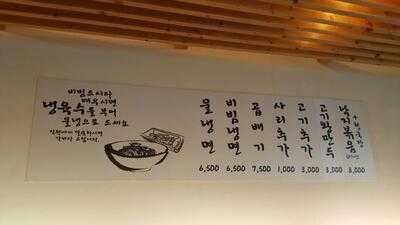 비빔드시다
매우시면
냉육수를 부어
물냉으로 드세요
물냉면 6,500
비빔냉면 6,500
곱배기 7,500
사리추가 1,000
고기추가 3,000
고기왕만두 3,000
낙지볶음 8,000